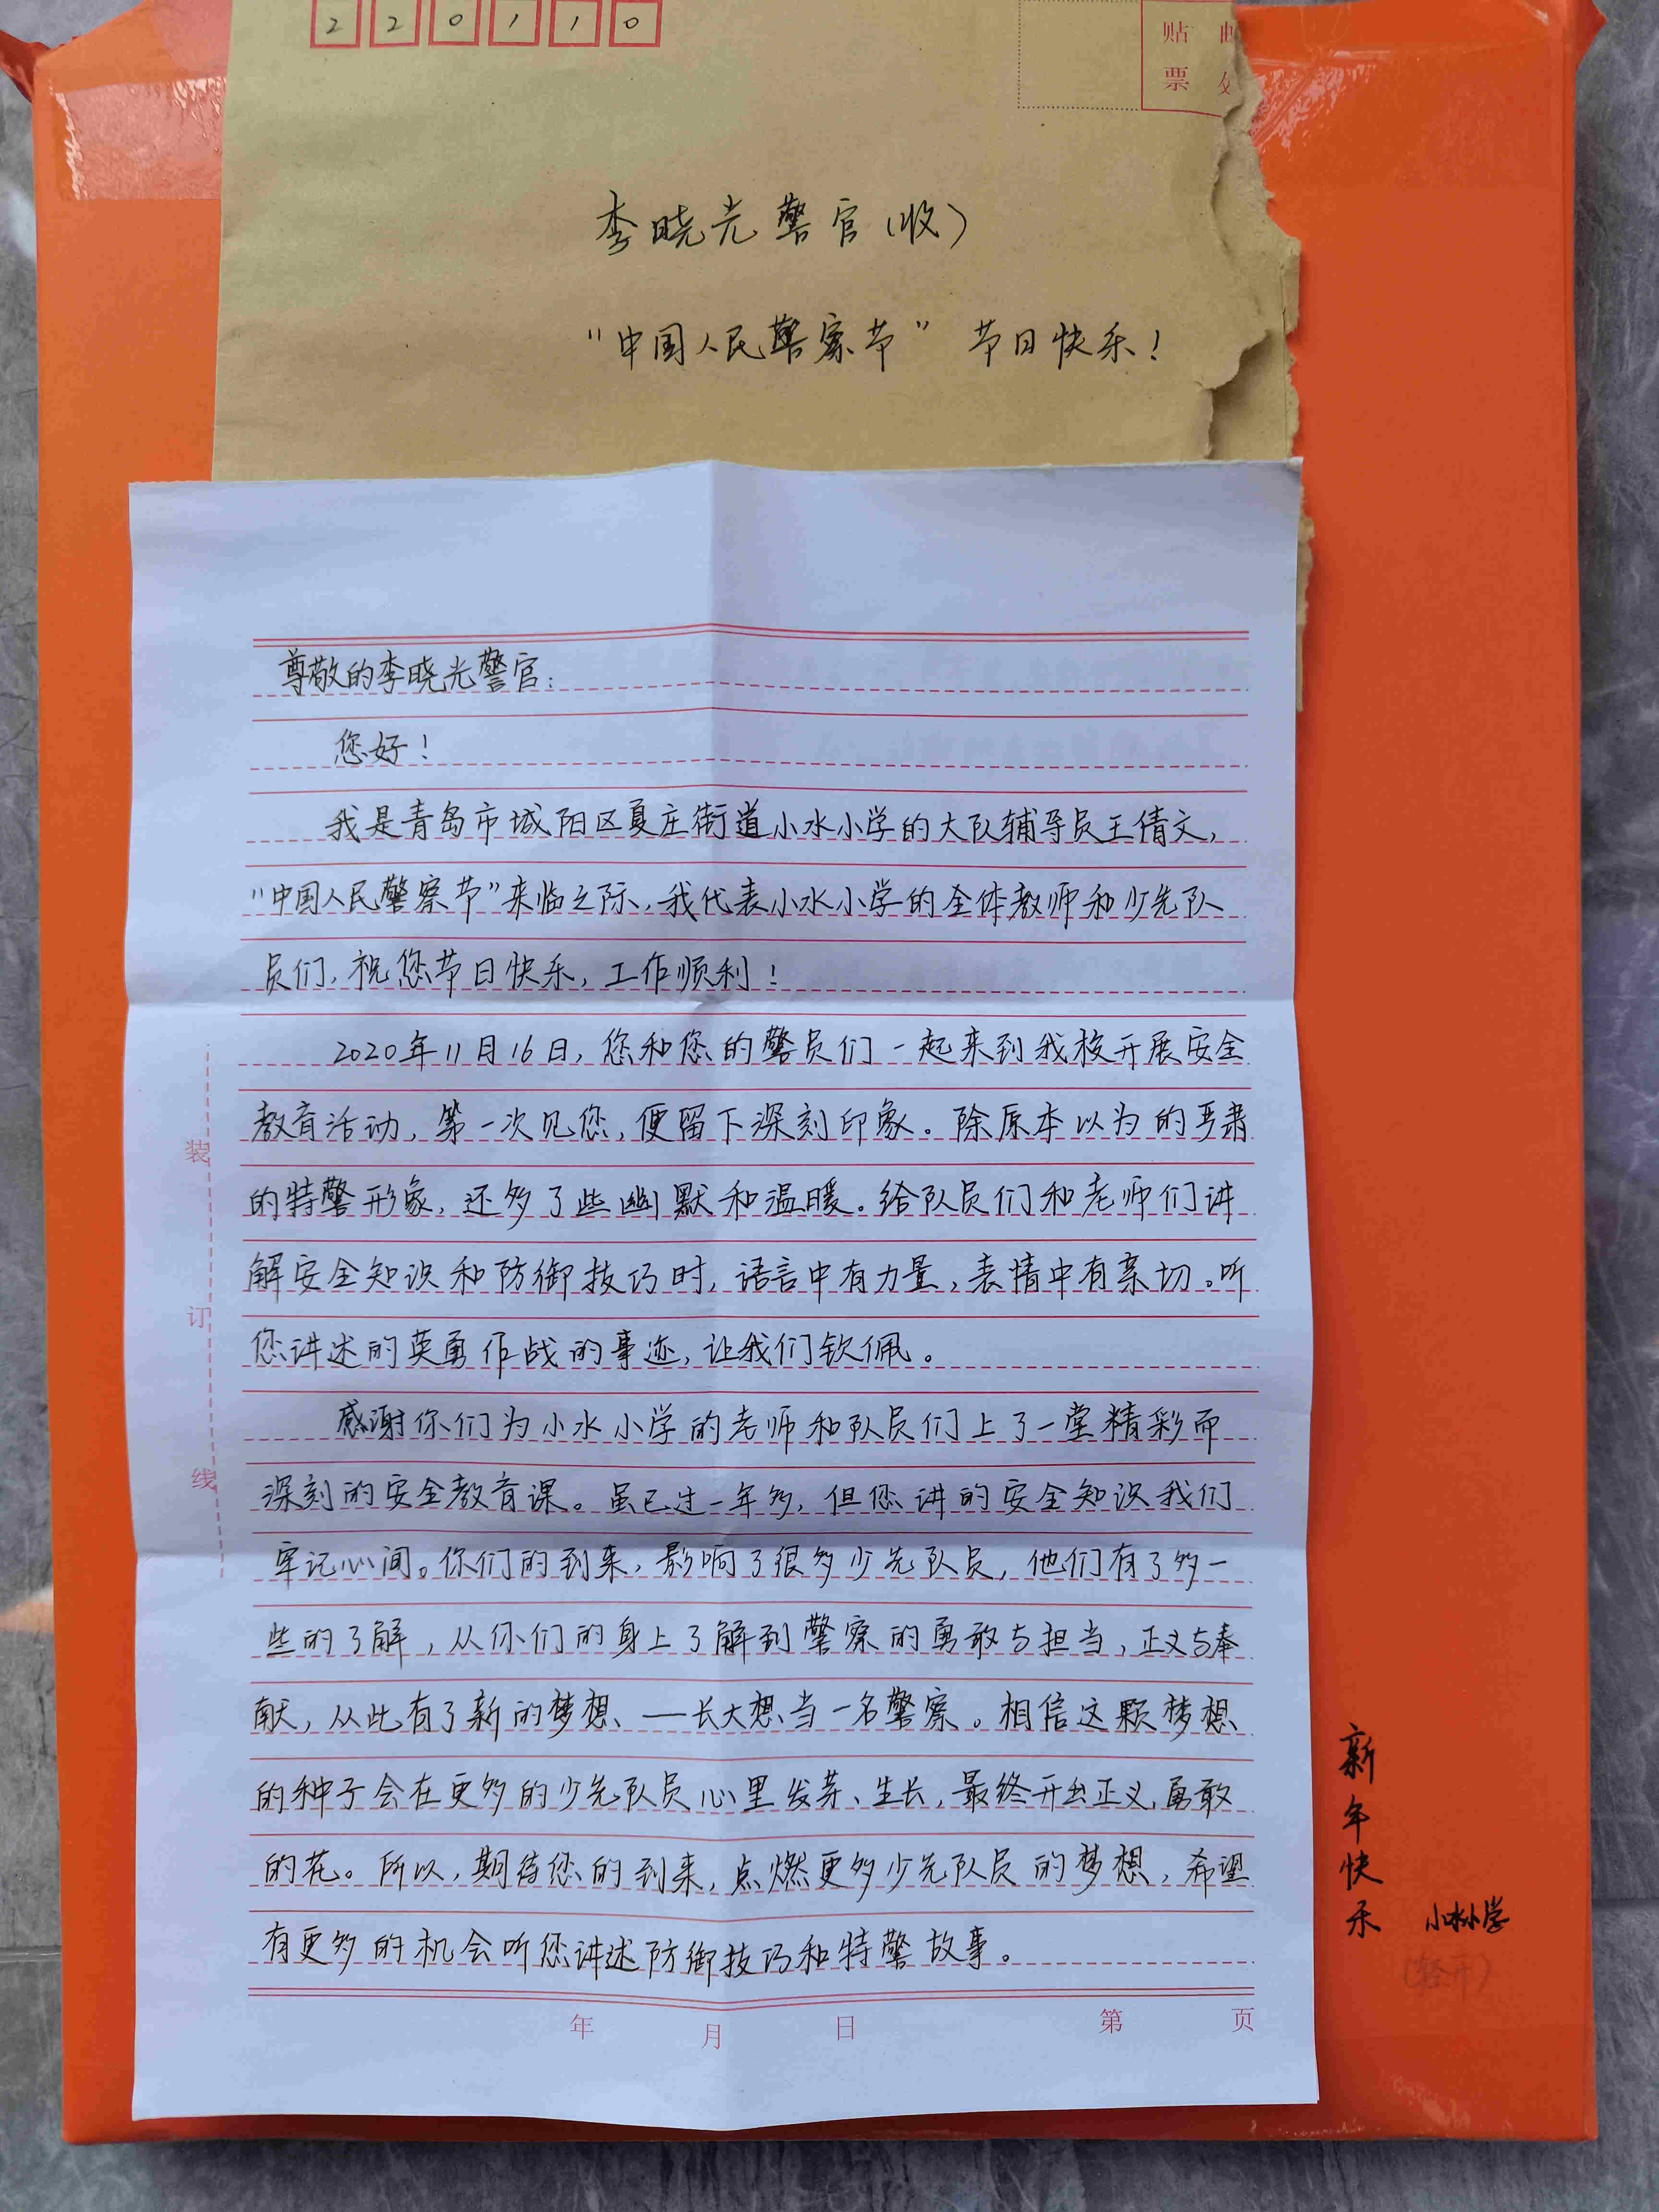 220110
贴 邮
票 处
李晓光警官(收)
“中国人民警察节” 节日快乐!
尊敬的李晓光警官:
您好!
我是青岛市城阳区夏庄街道小水小学的大队辅导员王倩文,
“中国人民警察节”来临之际,我代表小水小学的全体教师和少先队
员们,祝您节日快乐,工作顺利!
2020年11月16日,您和您的警员们一起来到我校开展安全
教育活动,第一次见您,便留下深刻印象。除原本以为的严肃
的特警形象,还多了些幽默和温暖。给队员们和老师们讲
解安全知识和防御技巧时,语言中有力量,表情中有亲切。听
您讲述的英勇作战的事迹,让我们钦佩。
感谢你们为小水小学的老师和队员们上了一堂精彩而
深刻的安全教育课。虽已过一年多,但您讲的安全知识我们
牢记心间。你们的到来,影响了很多少先队员,他们有了多一
些的了解,从你们的身上了解到警察的勇敢与担当,正义与奉
献,从此有了新的梦想、一长大想当一名警察。相信这颗梦想
的种子会在更多的少先队员心里发芽、生长,最终开出正义、勇敢
的花。所以,期待您的到来,点燃更多少先队员的梦想,希望
有更多的机会听您讲述防御技巧和特警故事。
年 月 日 第 页
装
订
线
新
年
快
乐
小水小学
(轻开)